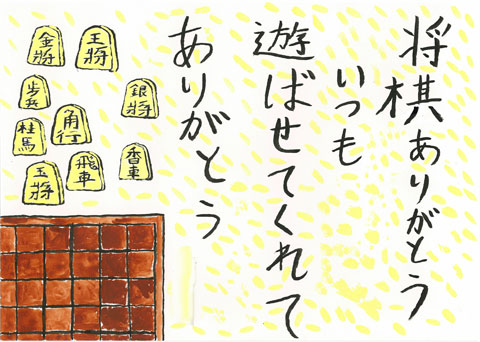 将棋ありがとう
いつも
遊ばせてくれて
ありがとう
王将
金将
銀将
歩兵
角行
桂馬
香車
飛車
玉将